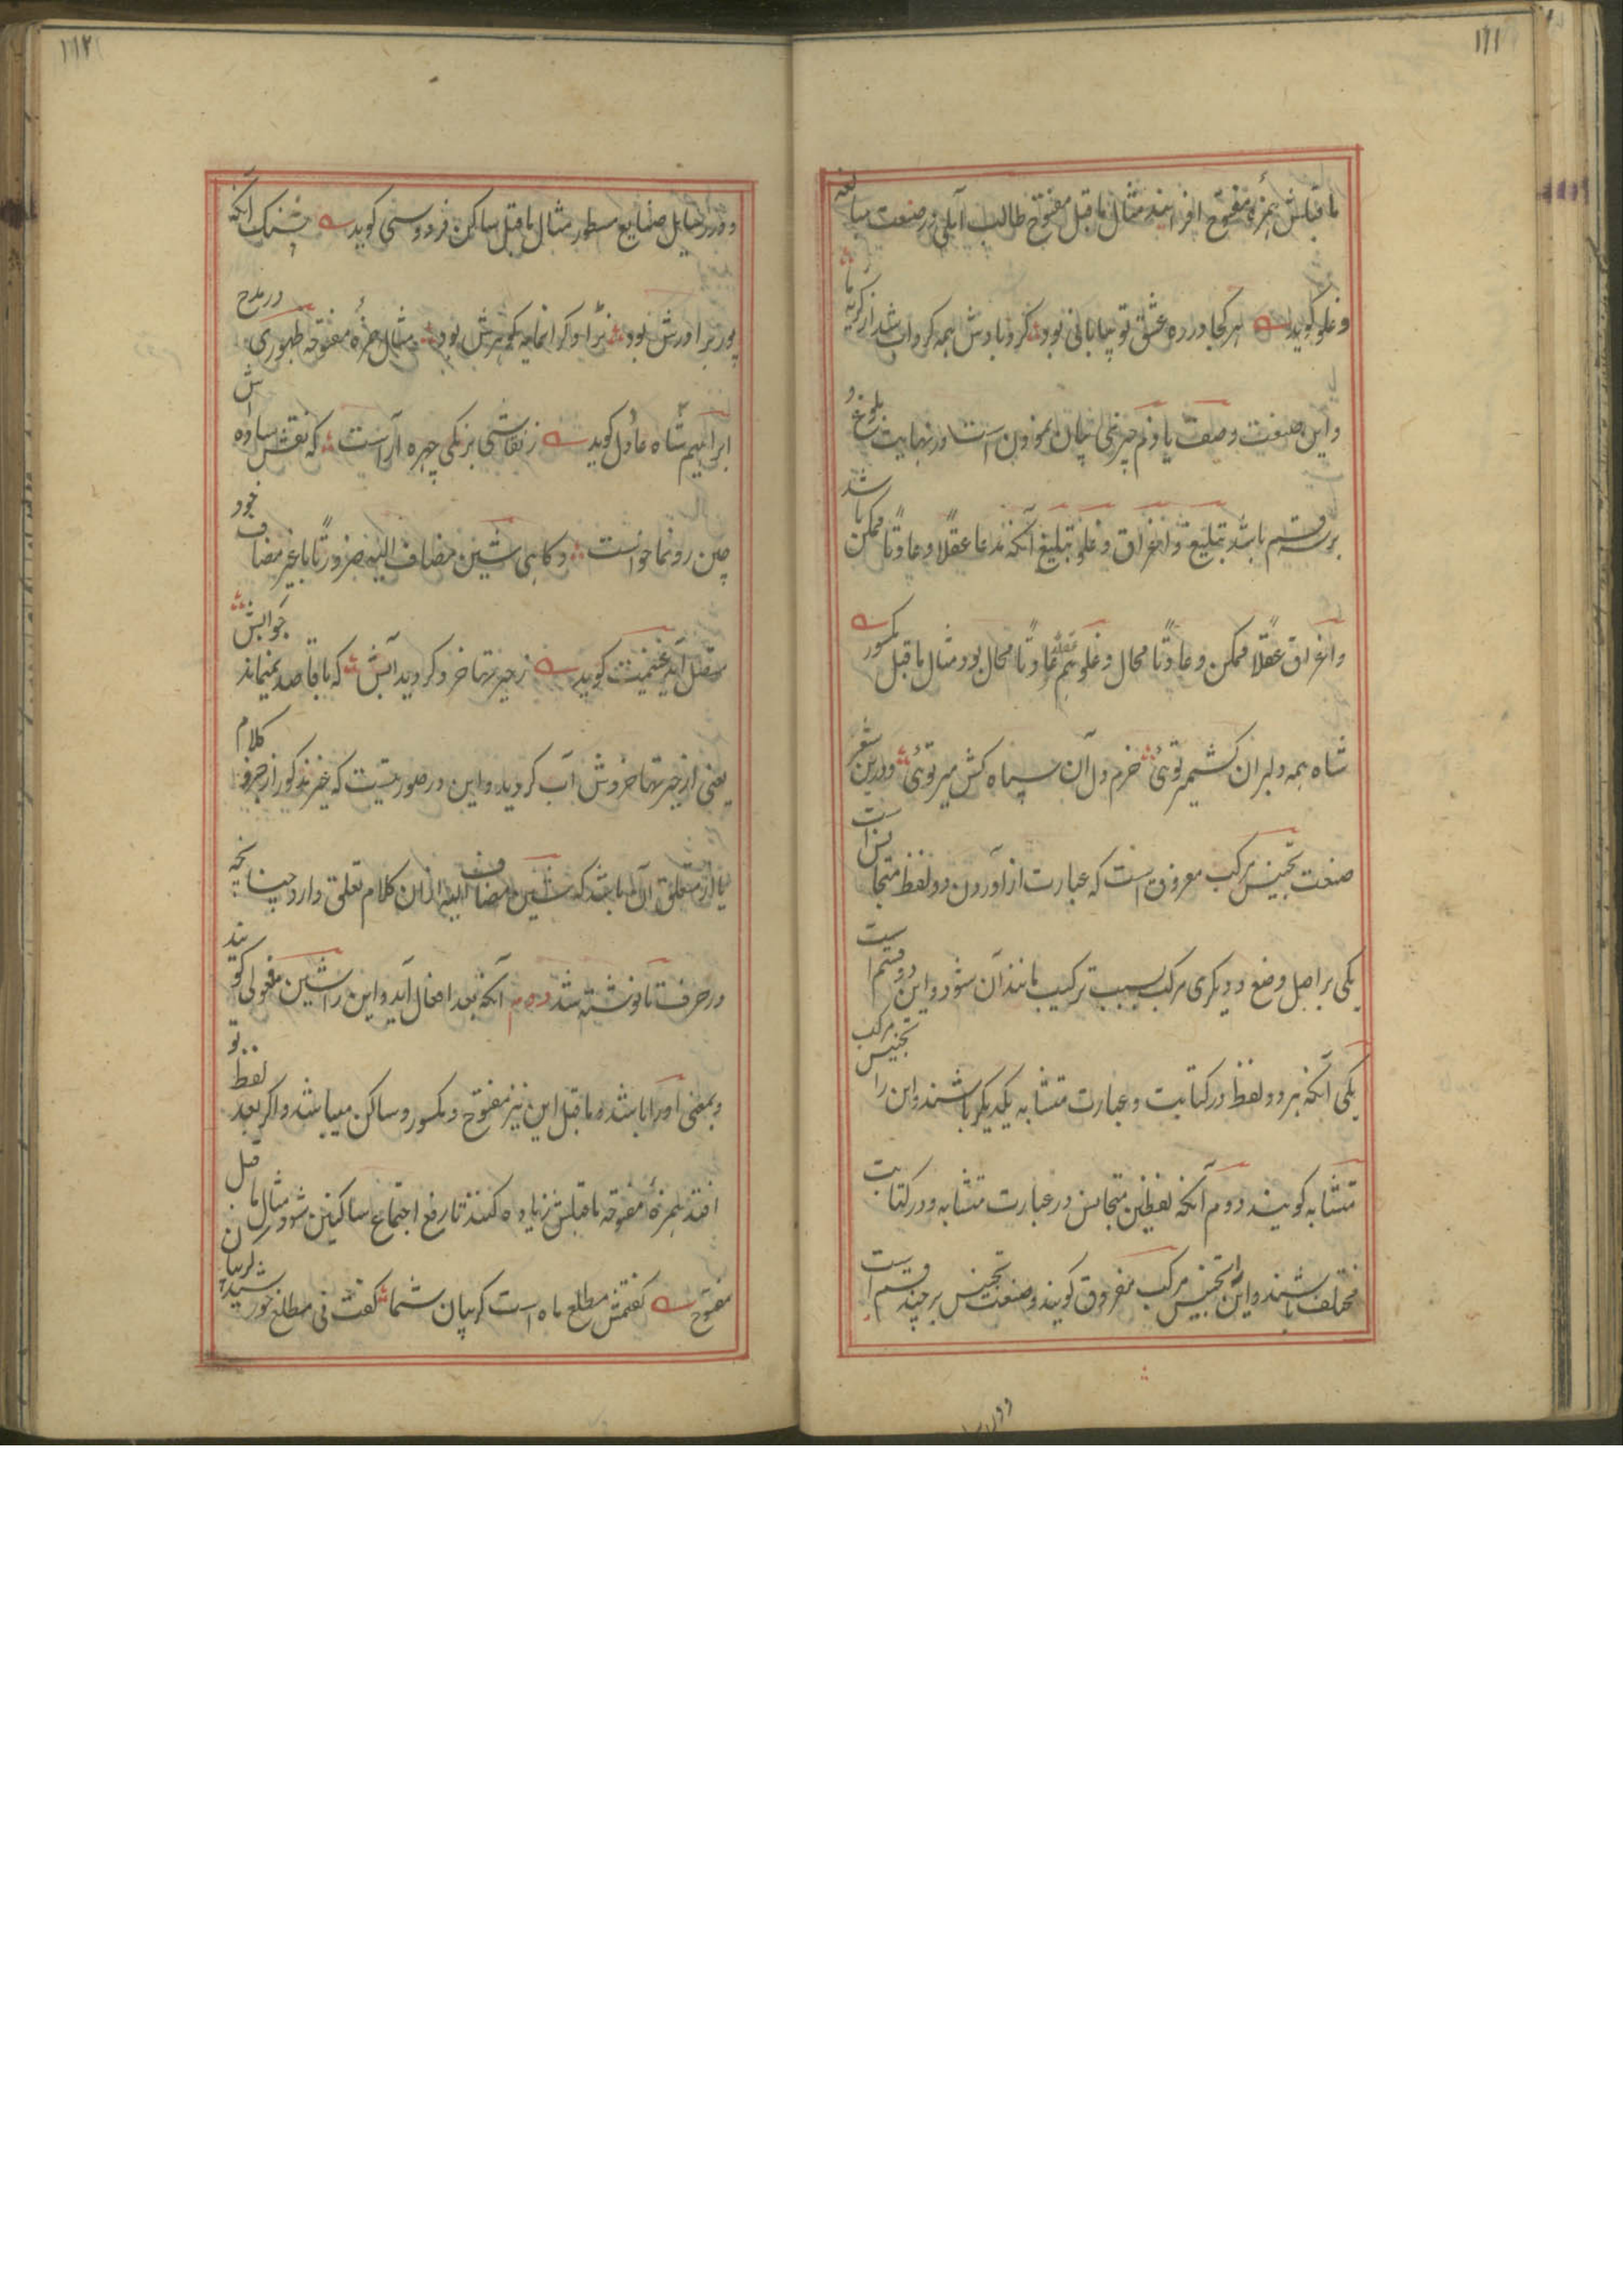 ۱۱۱
ما قبلش همزهٔ مفتوح افزایند مثال ما قبل مفتوح طالب آملی در صنعت مبالغه
و غلو کوید هر کجا در ره عشق تو بیابانی بود کردبادش همه کرداب شد از کریهٔ ما
و این صنعت وصف یا ذم چیزی بیان نمودن است در نهایت بلوغ و
بر سه قسم باشد تبلیغ و اغراق و غلو تبلیغ آنکه مدعا عقلاً و عادتاً ممکن باشد
و اغراق عقلاً ممکن و عادتاً محال و غلو هم عقلاً عادتاً محال بود مثال ما قبل مکسور
شاه همه دلبران کشمیر توئی خرم دل آن سپاه کش میر توئی و درین شعر
صنعت تجنیس مرکب معروف است که عبارت از آوردن دو لفظ متجانس است
یکی بر اصل وضع و دیکری مرکب بسبب ترکیب مانند آن شود و این دو قسم است
یکی آنکه هر دو لفظ در کتابت و عبارت متشابه یکدیکر باشند و این را تجنیس مرکب
متشابه کویند دوم آنکه لفظین متجانس در عبارت متشابه و در کتابت
مختلف باشند و این را تجنیس مرکب مفروق کویند و صنعت تجنیس بر چند قسم است
۱۱۲
و در رسایل صنایع مسطور مثال ما قبل ساکن فردوسی کوید پشنک آنکه
پور برادرش بود نژاد کرانمایه کوهرش بود مثال همزهٔ مفتوحه ظهوری در مدح
ابراهیم شاه عادل کوید ز نقاشی بزنکی چهره آراست که نقش ساده اش
چین رونما خواست و کاهی شین مضاف الیه ضرورتاً با غیر مضاف خود
متصل آید غنیمت کوید ز حیرتها خرد کردید آبش که با قاصد نمیماند جوابش
یعنی از حیرتها خردش آب کردید و این در صورتیست که خبر مذکور از حروف کلام
یا از متعلق آن باشد که شین مضاف الیه از آن کلام تعلق دارد چنانچه
در حرف تا نوشته شد دوم آنکه بعد افعال آید و این را شین مفعولی کویند
و بمعنی او را باشد و ما قبل این نیز مفتوح و مکسور و ساکن میباشد و اکر بعد لفظ تو
افتد همزهٔ مفتوحه ما قبلش زیاده کنند تا رفع اجتماع ساکنین شود مثال ما قبل
مفتوح کفتمش مطلع ماه است کریبان شما کفت فی مطلع خورشید کریبان